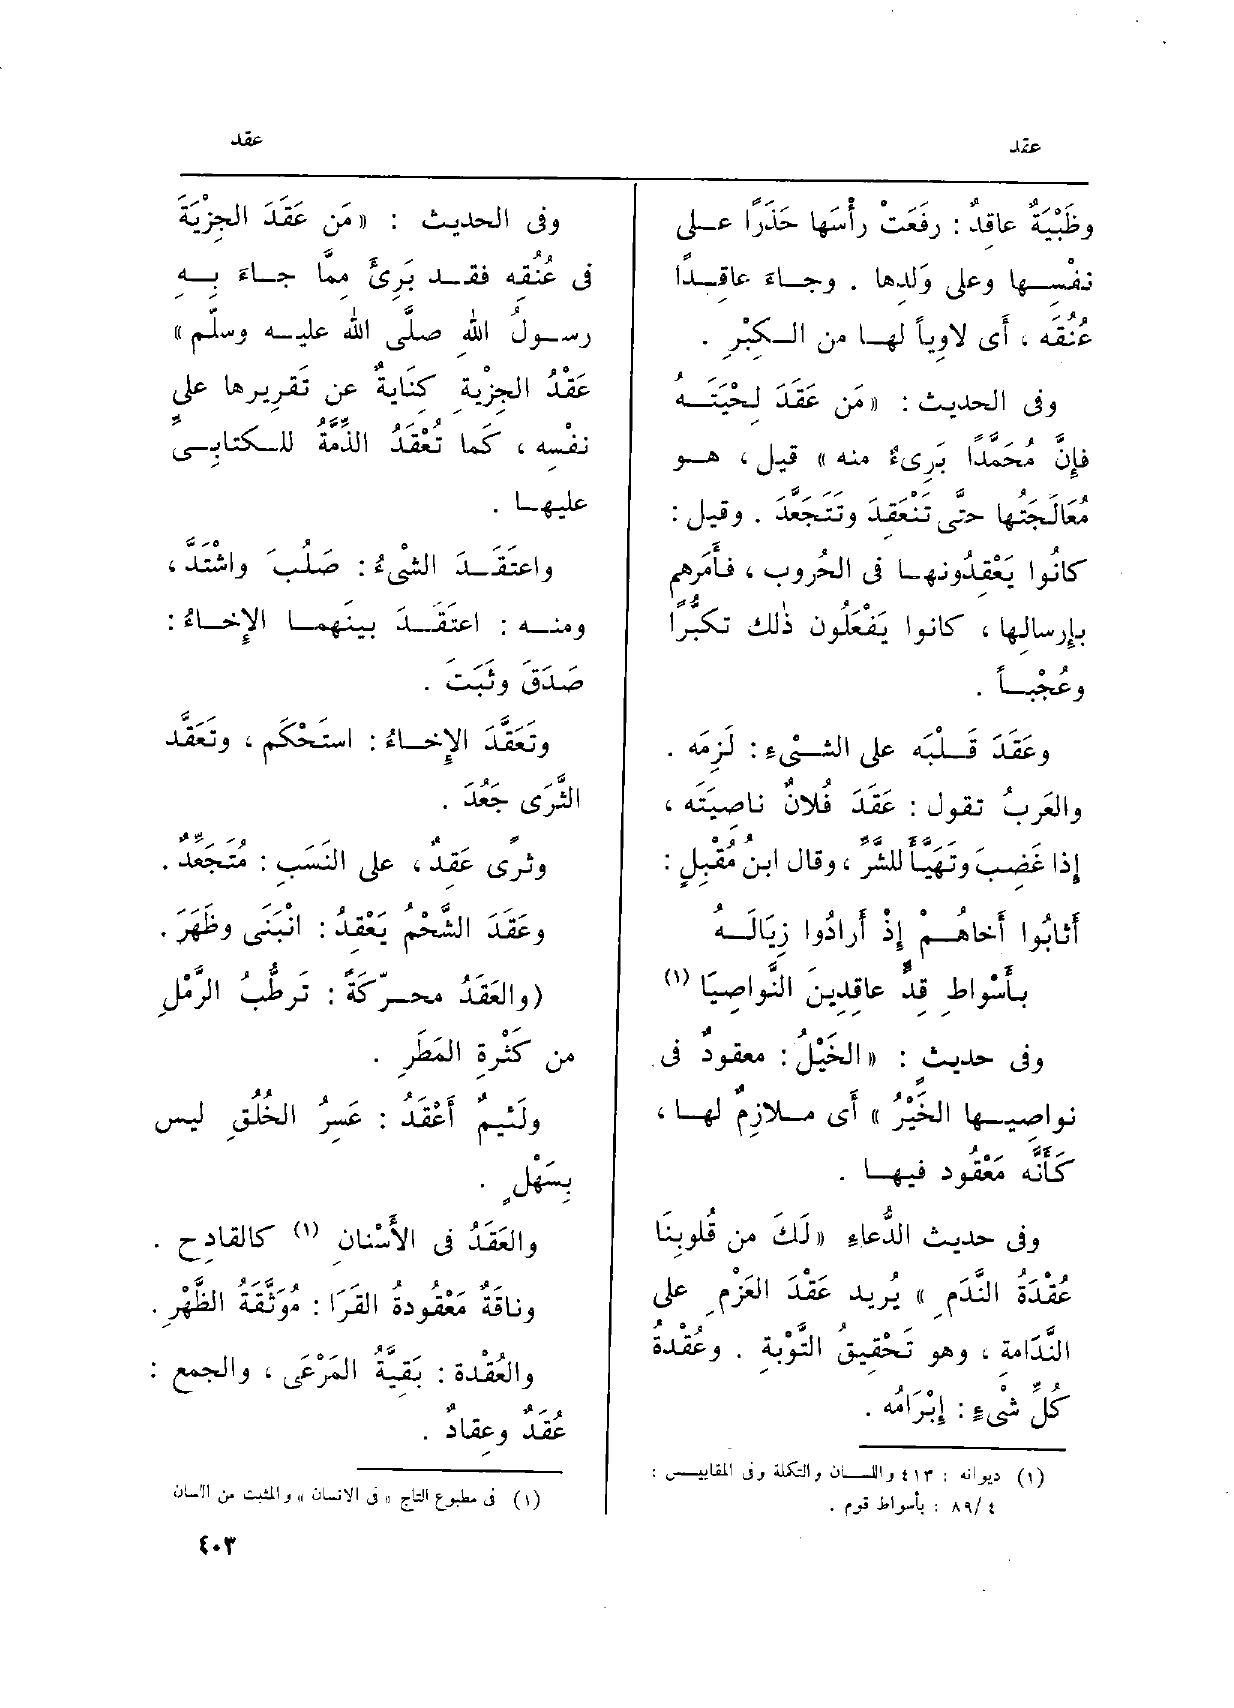 عقد
عقد
وظَبْيَةٌ عاقِدٌ : رفَعَتْ رأْسَها حَذَرًا علـى
نفْسِـها وعلى وَلدِها . وجـاءَ عاقِـدًا
عُنُقَه ، أَى لاوِياً لهـا من الـكِبْرِ .
وفى الحديث : « مَن عَقَدَ لِحْيَتَـهُ
فإِنَّ مُحَمَّدًا بَرِىءٌ منه » قيل ، هـو
مُعَالَجَتُها حتَّى تَنْعَقِدَ وتَتَجَعَّدَ . وقيل :
كانُوا يَعْقِدُونهـا فى الحُروب ، فأَمَرهم
بإِرسالها ، كانوا يَفْعَلُون ذٰلك تكَبُّرًا
وعُجْبـاً .
وعَقَدَ قَـلْبَه على الشـىْءِ : لَزِمَه .
والعَربُ تقول : عَقَدَ فُلانٌ ناصِيَتَه ،
إِذا غَضِبَ وتَهَيَّأَ للشرِّ ، وقال ابنُ مُقْبِلٍ :
أَثابُوا أَخاهُـمْ إِذْ أَرادُوا زِيَالَـهُ
بأَسْواطِ قِدٍّ عاقِدِينَ النَّواصِيَا (١)
وفى حديث : « الخَيْلُ : معقودٌ فى
نواصِيـها الخَيْرُ » أَى مـلازِمٌ لهـا ،
كَأَنَّه مَعْقُود فيهـا .
وفى حديث الدُّعاءِ « لَكَ من قُلوبِنَا
عُقْدَةُ النَّدَمِ » يُريد عَقْدَ العَزْمِ على
النَّدَامة ، وهو تَحْقيقُ التَّوْبةِ . وعُقْدةُ
كُلِّ شْىءٍ : إِبْرَامُه .
(١) ديوانه : ٤١٣ واللـسان والتكملة وفى المقاييـس :
٤ /٨٩ : بأسواط قوم .
وفى الحديث : « مَن عَقَدَ الجِزْيَةَ
فى عُنُقِه فقـد بَرِئَ ممَّا جـاءَ بِـهِ
رسـولُ اللهِ صلَّى اللهُ عليـه وسلّم »
عَقْدُ الجِزْيةِ كنَايةٌ عن تَقرِيرها على
نفْسِه ، كَما تُعْقَدُ الذِّمَّةُ للـكتابِـىِّ
عليهـا .
واعتَقَـدَ الشىْءُ : صَلُبَ واشْتَدَّ ،
ومنـه : اعتَقَـدَ بينَهمـا الإِخـاءُ :
صَدَقَ وثَبَتَ .
وتَعَقَّدَ الإِخـاءُ : استَحْكَم ، وتَعَقَّد
الثَّرَى جَعُدَ .
وثرًى عَقِدٌ ، على النَّسَبِ : مُتَجَعِّدٌ .
وعَقَدَ الشَّحْمُ يَعْقِدُ : انْبَنَى وظَهَرَ .
(والعَقَدُ محـرّكَةً : تَرطُّبُ الرَّمْلِ
من كَثْرةِ المَطَرِ .
ولَئيمٌ أَعْقَدُ : عَسِرُ الخُلُقِ ليس
بِسَهْلٍ .
والعَقَدُ فى الأَسْنانِ (١) كالقادِحِ .
وناقَةٌ مَعْقُودةُ القَرَا : مُوَثَّقَةُ الظَّهْرِ .
والعُقْدة : بَقيَّةُ المَرْعَى ، والجمع :
عُقَدٌ وعِقادٌ .
(١) فى مطبوع التاج « فى الانسان » والمثبت من اللسان
٤٠٣